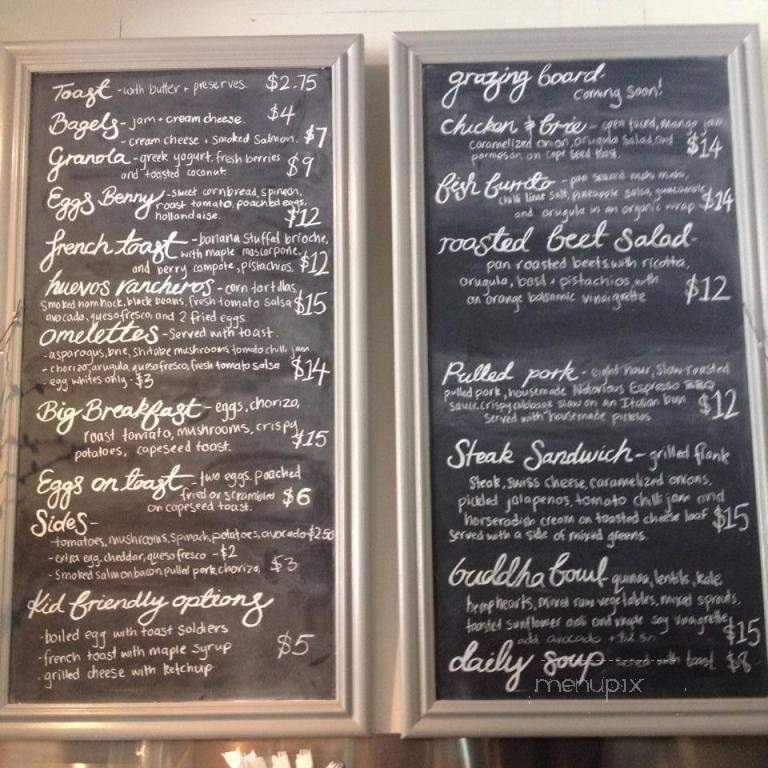 Toast - with butter + preserves. $2.75
Bagels - jam + cream cheese. $4
- cream cheese + smoked salmon. $7
Granola - greek yogurt, fresh berries
and toasted coconut. $9
Eggs Benny - sweet cornbread, spinach,
roast tomato, poached eggs,
hollandaise. $12
french toast - banana stuffed brioche,
with maple mascarpone,
and berry compote, pistachios. $12
huevos rancheros - corn tortillas,
smoked ham hock, black beans, fresh tomato salsa $15
avocado, queso fresco, and 2 fried eggs.
omelettes - served with toast.
- asparagus, brie, shitake mushrooms tomato chilli jam
- chorizo, arugula, queso fresco, fresh tomato salsa $14
- egg whites only - $3
Big Breakfast - eggs, chorizo,
roast tomato, mushrooms, crispy
potatoes, capeseed toast. $15
Eggs on toast - two eggs. poached
fried or scrambled $6
on capeseed toast.
Sides -
- tomatoes, mushrooms, spinach, potatoes, avocado $2.50
- extra egg, cheddar, queso fresco - $2
- smoked salmon, bacon, pulled pork, chorizo, $3
Kid friendly options
- boiled egg with toast soldiers
- french toast with maple syrup $5
- grilled cheese with ketchup
grazing board -
coming soon!
chicken & brie - open faced, mango jam
caramelized onion, arugula salad and
parmesan, on cape seed toast. $14
fish burrito - pan seared mahi mahi,
chilli lime salt, pineapple salsa, guacamole
and arugula in an organic wrap. $14
roasted beet salad -
pan roasted beets with ricotta,
arugula, basil + pistachios, with
an orange balsamic vinaigrette $12
Pulled pork - eight hour, slow-roasted
pulled pork, housemade Notorious Espresso BBQ
sauce, crispy cabbage slaw on an Italian bun
served with housemade pickles $12
Steak Sandwich - grilled flank
steak, swiss cheese, caramelized onions,
pickled jalapenos, tomato chilli jam and
horseradish cream on toasted cheese loaf $15
served with a side of mixed greens.
buddha bowl - quinoa, lentils, kale,
hemphearts, mixed raw vegetables, mixed sprouts,
toasted sunflower aioli and maple soy vinaigrette $15
add avocado + $2.50
daily soup - served with toast $8
menupix